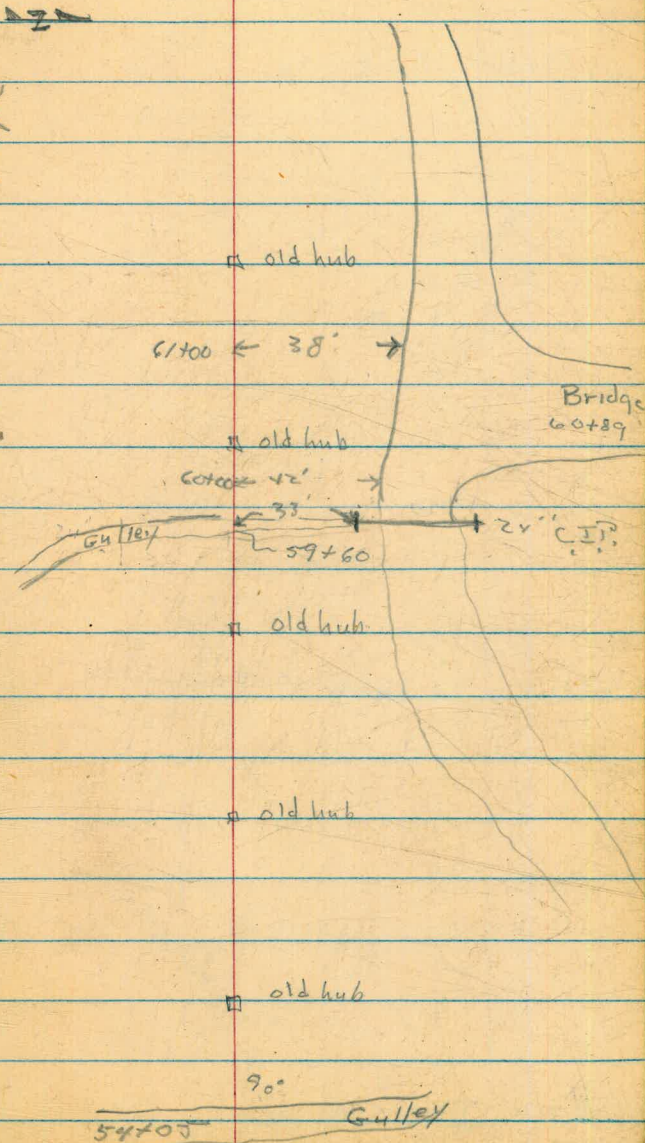 Z
old hub
61+00 38'
Bridge
60+89
old hub
60+00 42'
33'
Gulley
24" C.I.P.
59+60
old hub
old hub
old hub
90°
Gulley
54+05